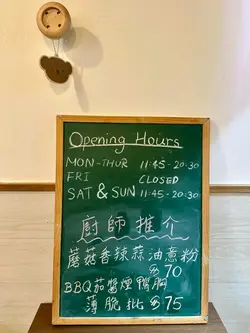 Opening Hours
MON-THUR 11:45-20:30
FRI CLOSED
SAT & SUN 11:45-20:30
廚師推介
蘑菇香辣蒜油意粉
$70
BBQ茄醬煙鴨胸
薄脆批 $75